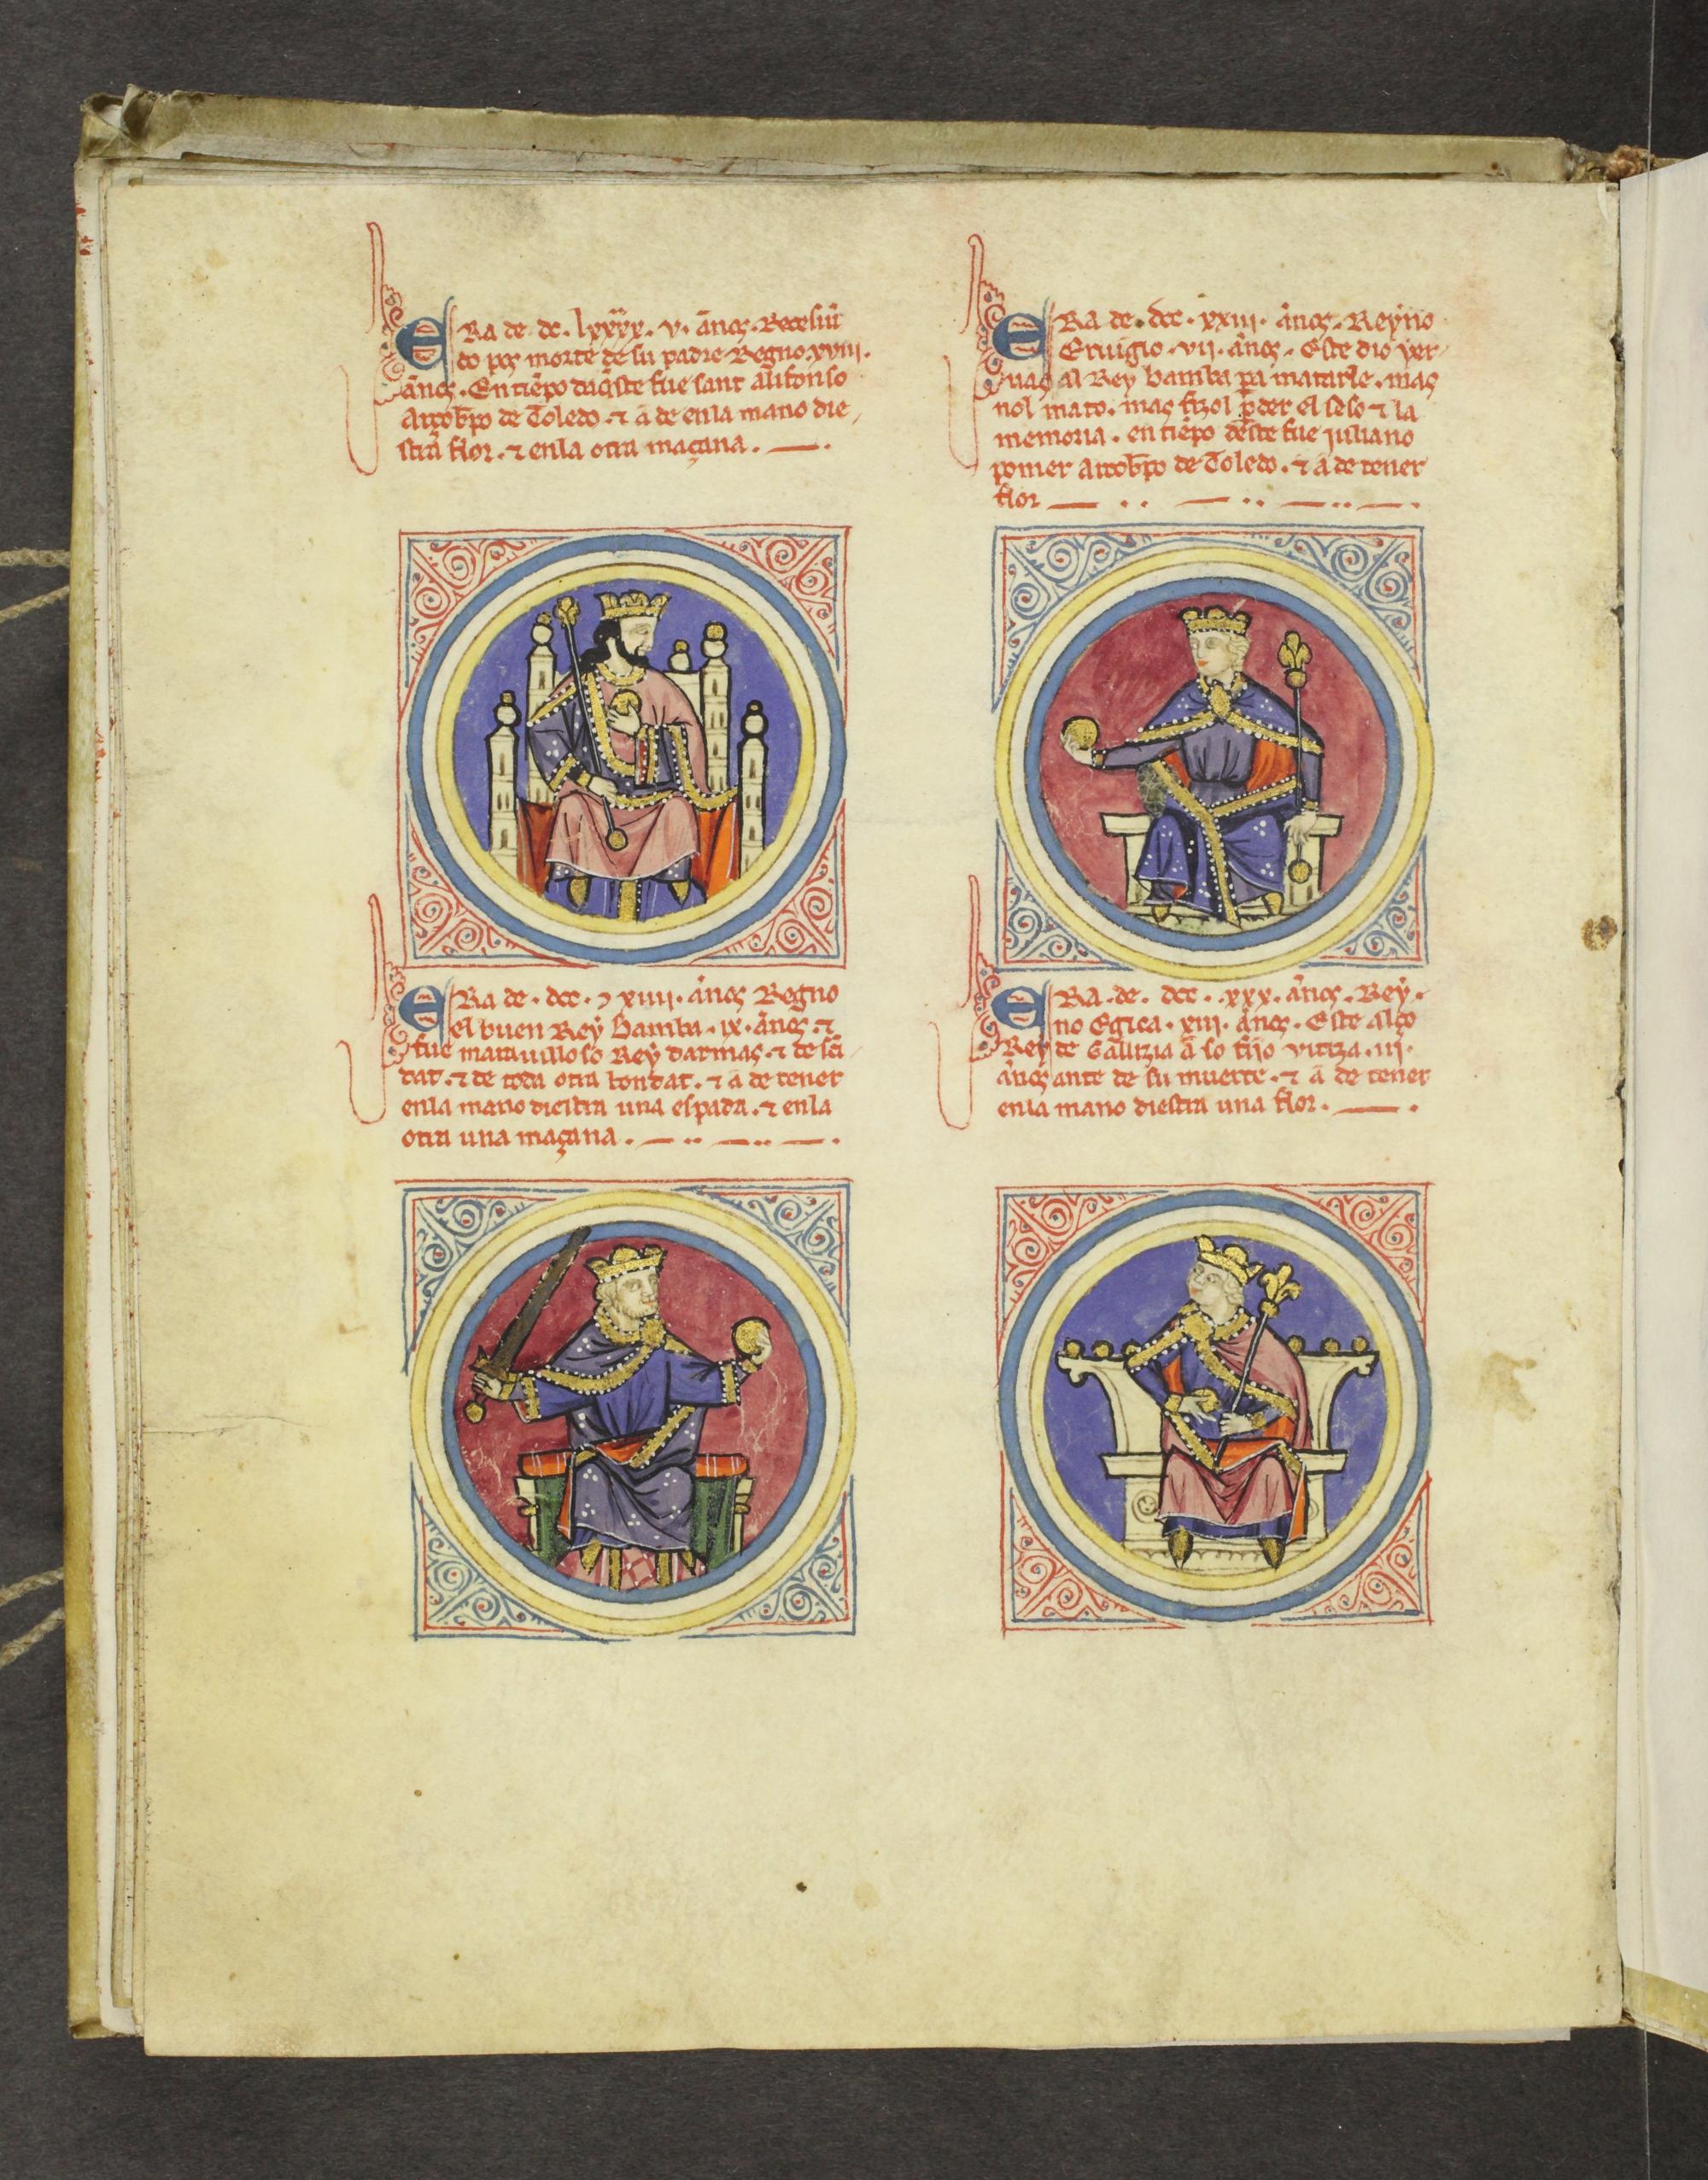 ERa de. dc. lxxxx. v. ãnos. Recesiũ
do pos morte de su padre. Regno. xviii.
ãnos. En tiẽpo daq̃ste fue sant alifonso
arçob̃po de Toledo. ⁊ ã de en la mano die
stra flor. ⁊ en la otra maçana.
ERa de. dcc. ⁊ xiiii. ãnos Regno
el buen Rey bamba. ix. ãnos. ⁊
fue marauilloso Rey darmas. ⁊ de sc̃i
dat. ⁊ de toda otra bondat. ⁊ ã de tener
en la mano diestra una espada. ⁊ en la
otra una maçana.
ERa de. dcc. xxiii. ãnos. Reyno
Eruigio. vii. ãnos. Este dio yer
uas al Rey bamba pa matarle. mas
nol mato. mas fizol p̱der el seso ⁊ la
memoria. en tiẽpo deste fue juliano
pomer arçob̃po de Toledo. ⁊ ã de tener
flor
ERa. de. dcc. xxx. ãnos. Rey
no Egica. xiii. ãnos. Este alço
Rey de Gallizia ã so fijo vitiza. iii.
ãnos ante de su muerte. ⁊ ã de tener
en la mano diestra una flor.